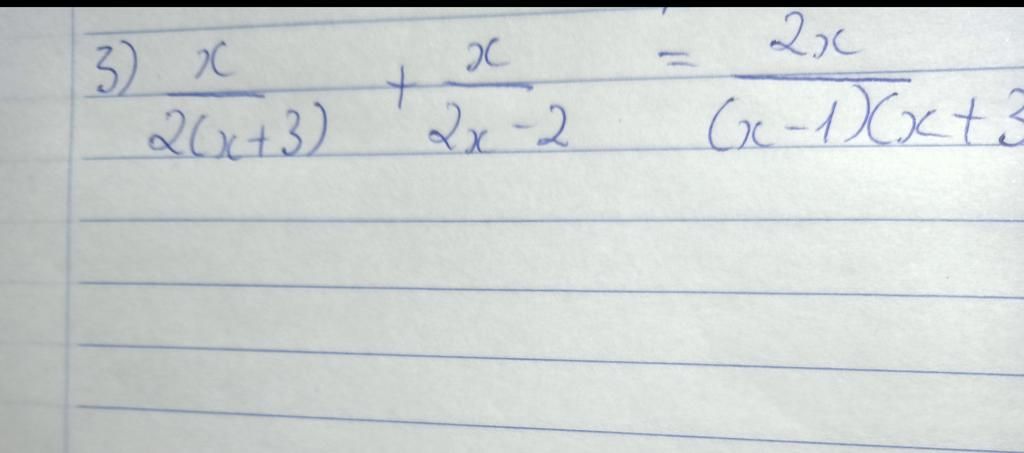 3) x/2(x+3) + x/2x-2 = 2x/(x-1)(x+3